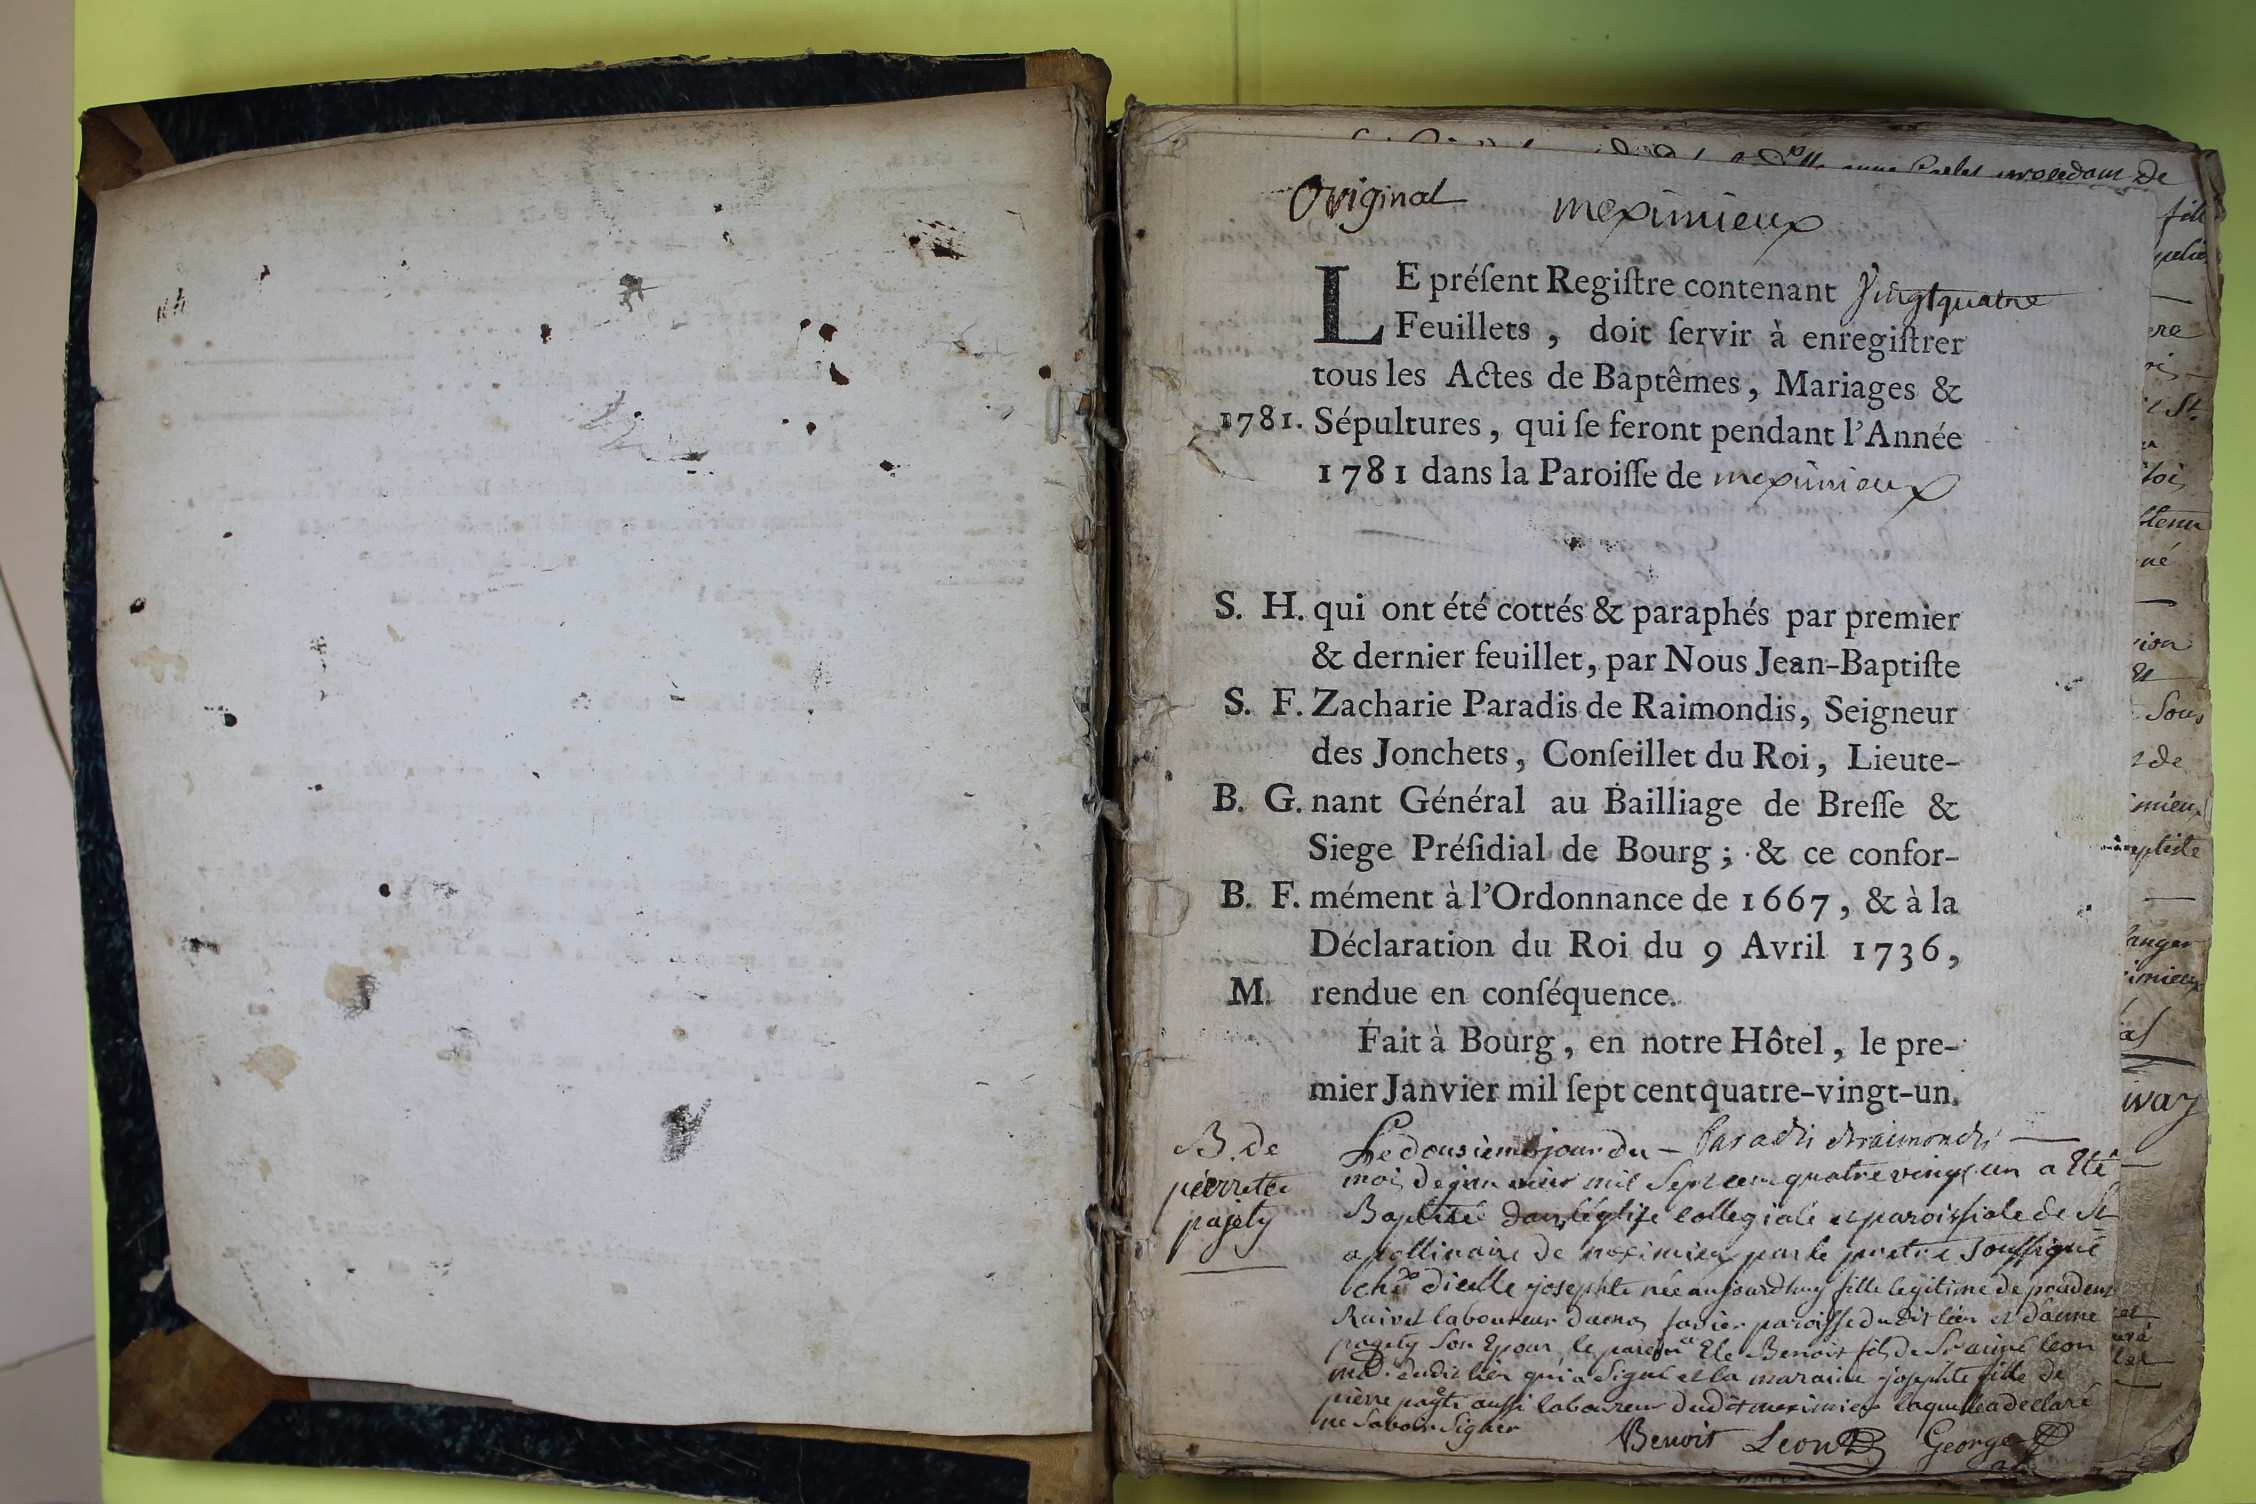 Original meximieux
LE préſent Regiſtre contenant Vingtquatre
Feuillets, doit ſervir à enregiſtrer
tous les Actes de Baptêmes, Mariages &
1781. Sépultures, qui ſe feront pendant l'Année
1781 dans la Paroiſſe de meximieux
S. H. qui ont été cottés & paraphés par premier
& dernier feuillet, par Nous Jean-Baptiſte
S. F. Zacharie Paradis de Raimondis, Seigneur
des Jonchets, Conſeillet du Roi, Lieute-
B. G. nant Général au Bailliage de Breſſe &
Siege Préſidial de Bourg; & ce confor-
B. F. mément à l'Ordonnance de 1667, & à la
Déclaration du Roi du 9 Avril 1736,
M. rendue en conſéquence.
Fait à Bourg, en notre Hôtel, le pre-
mier Janvier mil ſept cent quatre-vingt-un.
Paradis deraimondis
B. de
pierrette
pajety
Le dousieme jour du
mois de janvier mil Sept cent quatre vingt un a Eté
Baptisé dans l'église collegiale et paroissiale de St
apollinaire de meximieux par le pretre soussigné
josephte née aujourdhuy fille legitime de
laboureur paroisse dudit lieu et d'anne
pagety Son Epoux le parein a Ete Benoit fils de Sr aimé leon
md. dudit lieu qui a Signé et la maraine josephte fille de
pierre aussi laboureur dudit meximieux laquelle a declaré
ne Savoir Signer
Benoit Leon George